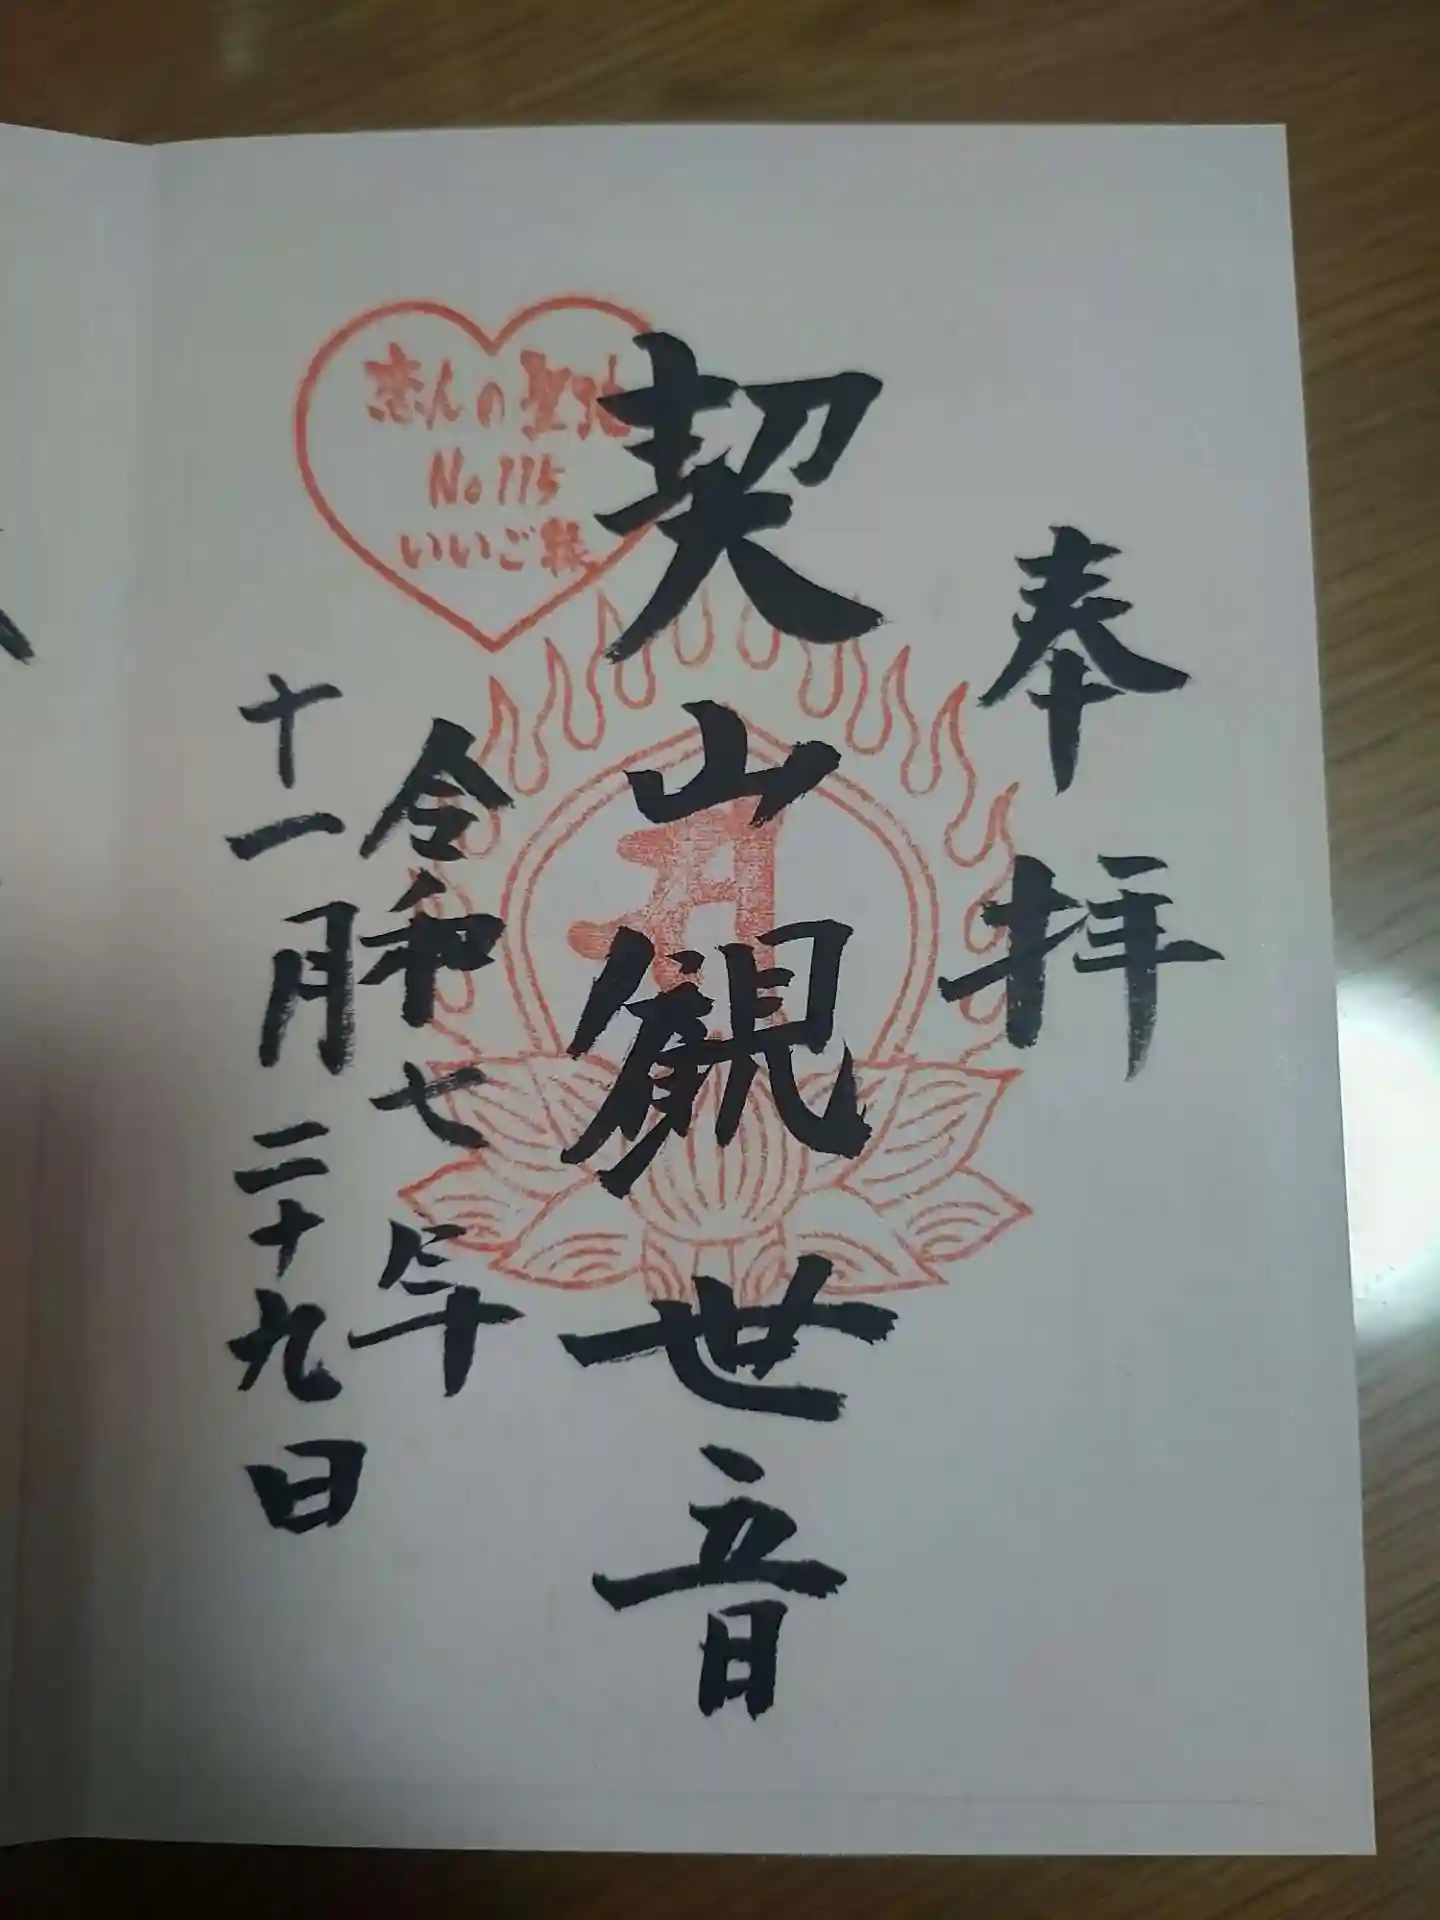 奉拝
契山観世音
令和七年
十一月二十九日
恋人の聖地
No 115
いいご縁